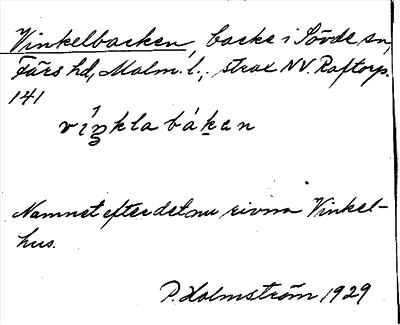 Vinkelbacken, backe i Sövde sn,
Färs hd, Malm. l., strax NV. Raftorp.
141
víŋkla báken
Namnet efter det nu rivna Vinkel-
hus.
P. Holmström 1929